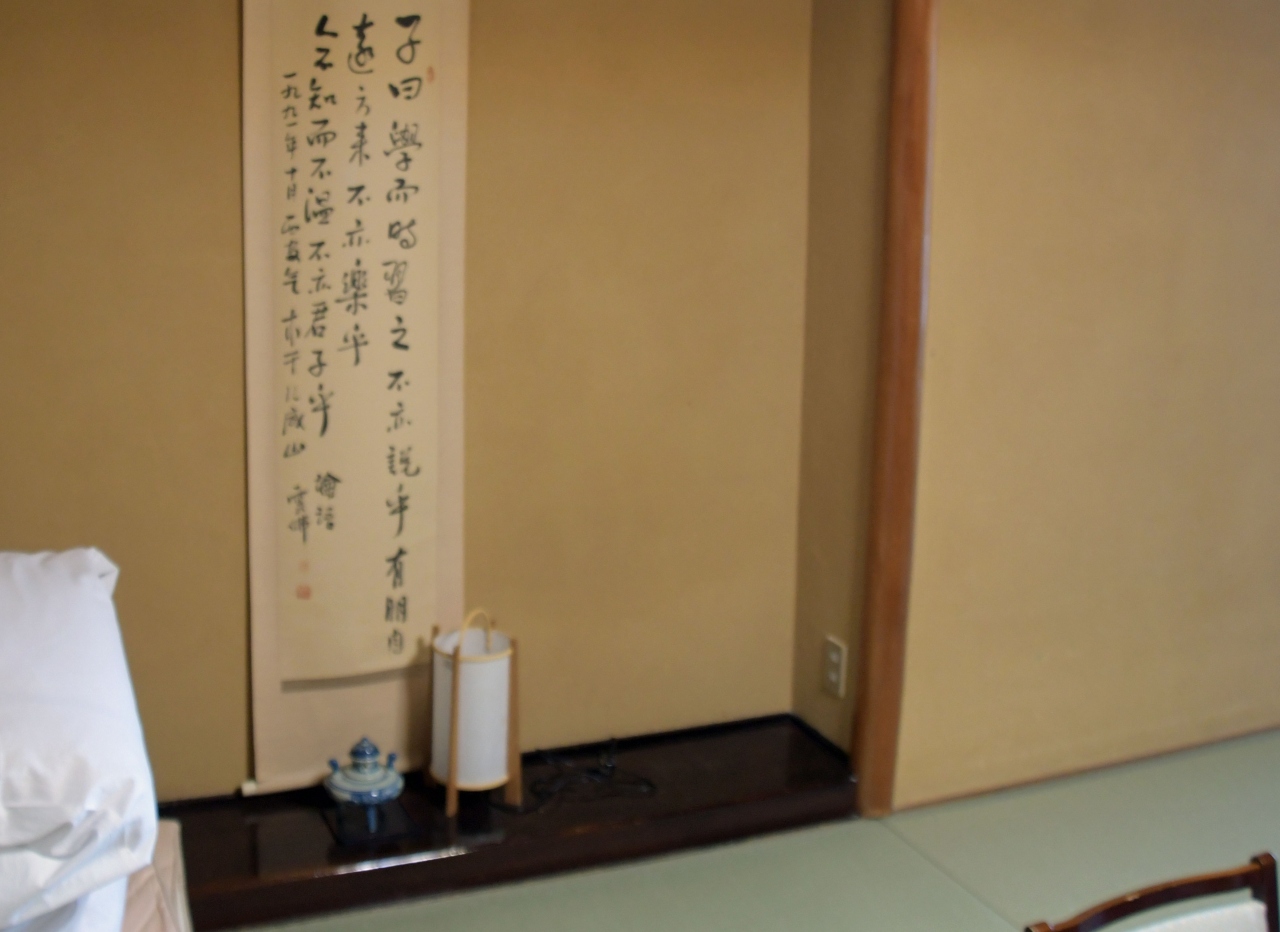 子曰學而時習之不亦說乎有朋自
遠方来不亦樂乎
人不知而不温不亦君子乎 論語
一九九一年十月